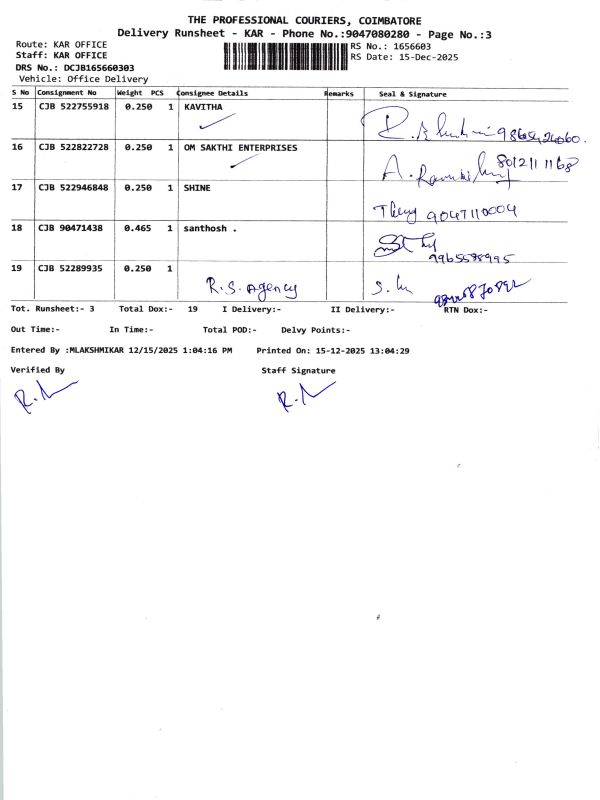 THE PROFESSIONAL COURIERS, COIMBATORE
Delivery Runsheet - KAR - Phone No.:9047080280 - Page No.:3
Route: KAR OFFICE RS No.: 1656603
Staff: KAR OFFICE RS Date: 15-Dec-2025
DRS No.: DCJB165660303
Vehicle: Office Delivery
S No Consignment No Weight PCS Consignee Details Remarks Seal & Signature
15 CJB 522755918 0.250 1 KAVITHA
16 CJB 522822728 0.250 1 OM SAKTHI ENTERPRISES
8012111168
17 CJB 522946848 0.250 1 SHINE
9047110004
18 CJB 90471438 0.465 1 santhosh .
9965598995
19 CJB 52289935 0.250 1
R.S. Agency
Tot. Runsheet:- 3 Total Dox:- 19 I Delivery:- II Delivery:- RTN Dox:-
Out Time:- In Time:- Total POD:- Delvy Points:-
Entered By :MLAKSHMIKAR 12/15/2025 1:04:16 PM Printed On: 15-12-2025 13:04:29
Verified By Staff Signature